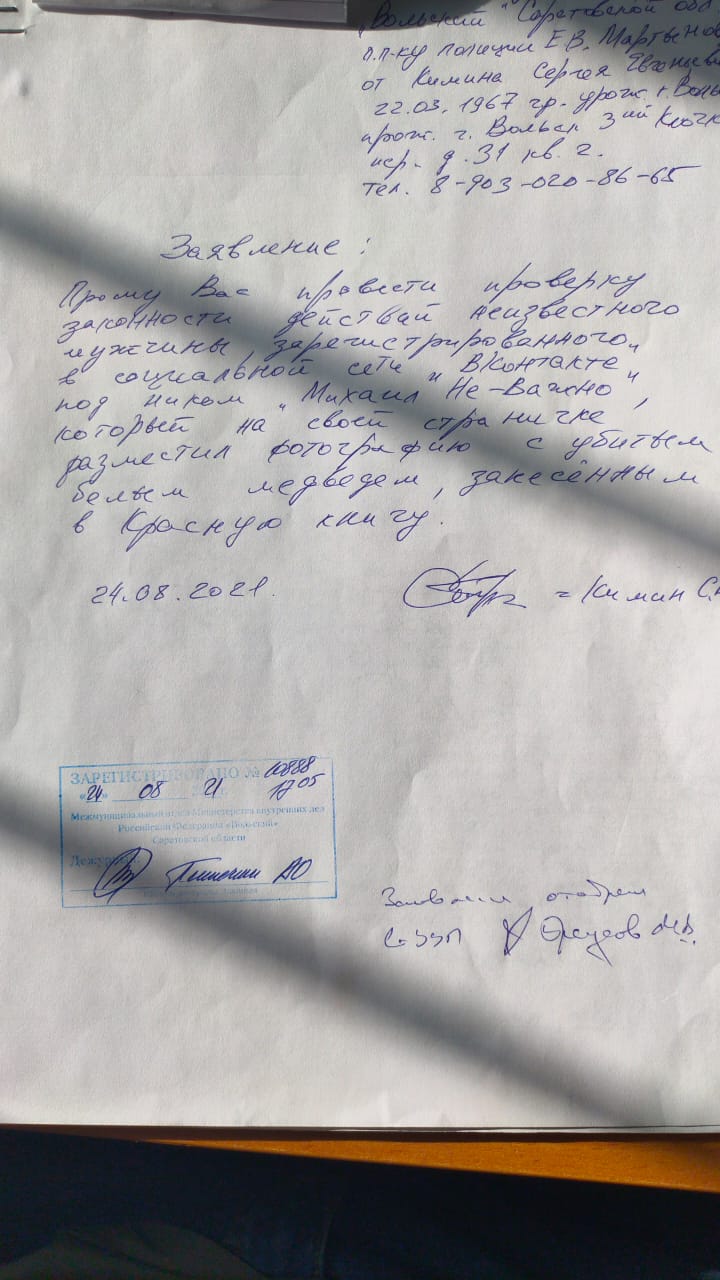 „Вольский" Саратовской обл
п.п-ку полиции Е.В. Мартынов
от Кимина Сергея Евгеньеви
22.03.1967 гр. урож. г. Воль
прож. г. Вольск 3ий Клочк
пер. д.31 кв. 2.
тел. 8-903-020-86-65
Заявление:
Прошу Вас провести проверку
законности действий неизвестного
мужчины зарегистрированного
в социальной сети „ВКонтакте"
под ником „Михаил Не-Важно",
который на своей страничке
разместил фотографию с убитым
белым медведем, занесённым
в Красную книгу.
24.08.2021.
= Кимин С.
ЗАРЕГИСТРИРОВАНО № 10888
«24» 08 21 17 05
Межмуниципальный отдел Министерства внутренних дел
Российской Федерации «Вольский»
Саратовской области
Дежурный
АО